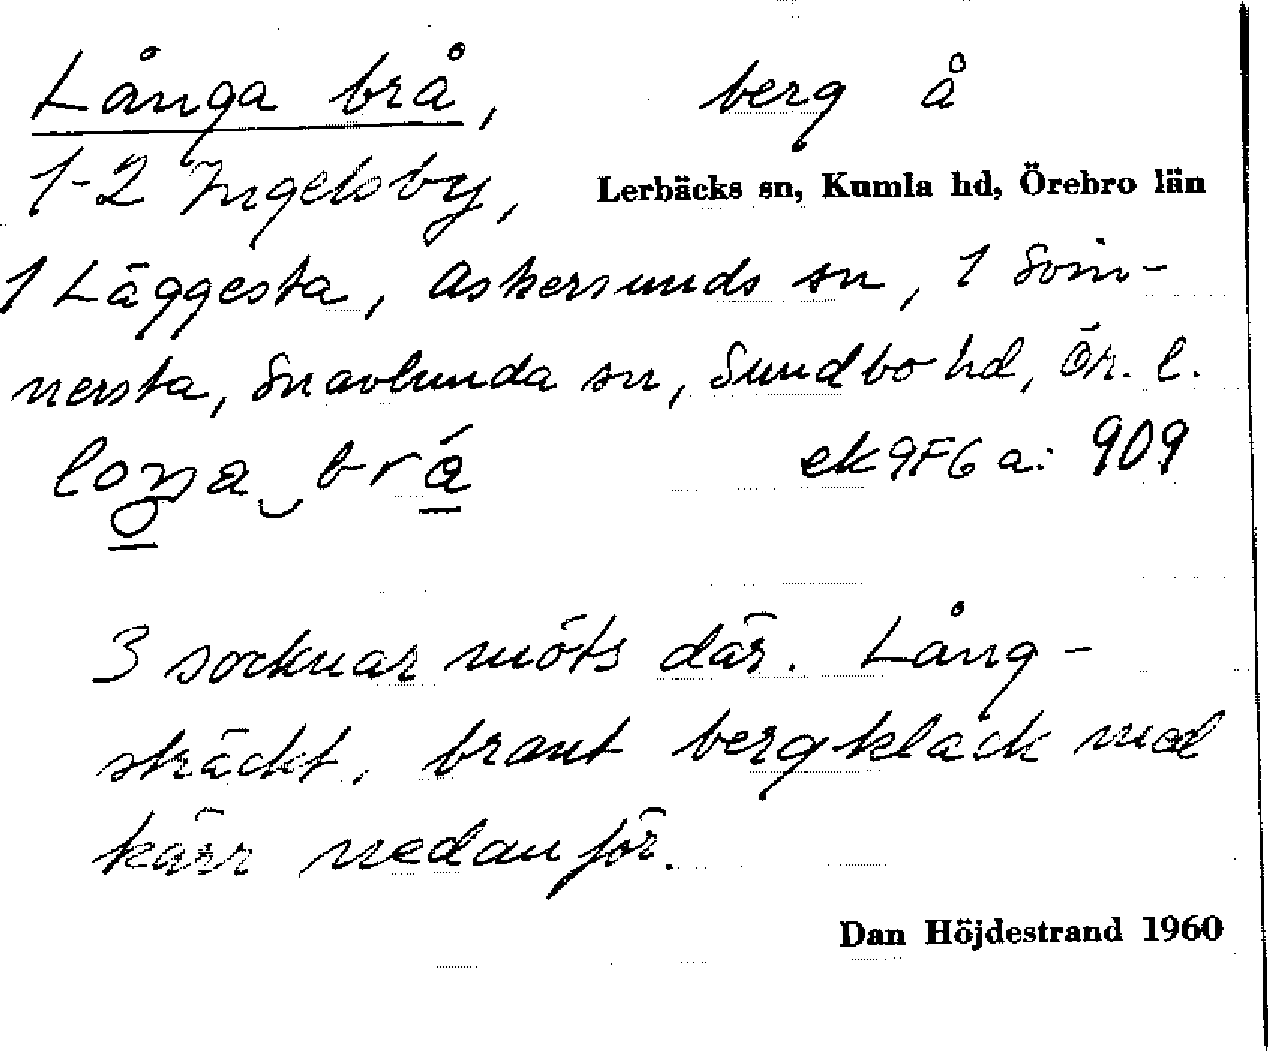 Långa brå, berg å
1-2 Ingelsby, Lerbäcks sn, Kumla hd, Örebro län
1 Läggesta, Askersunds sn, 1 Söm-
nersta, Snavlunda sn, Sundbo hd, Ör. l.
brá ek 9F6a: 909
3 socknar möts där. Lång-
sträckt, brant bergkläck med
kärr nedanför.
Dan Höjdestrand 1960